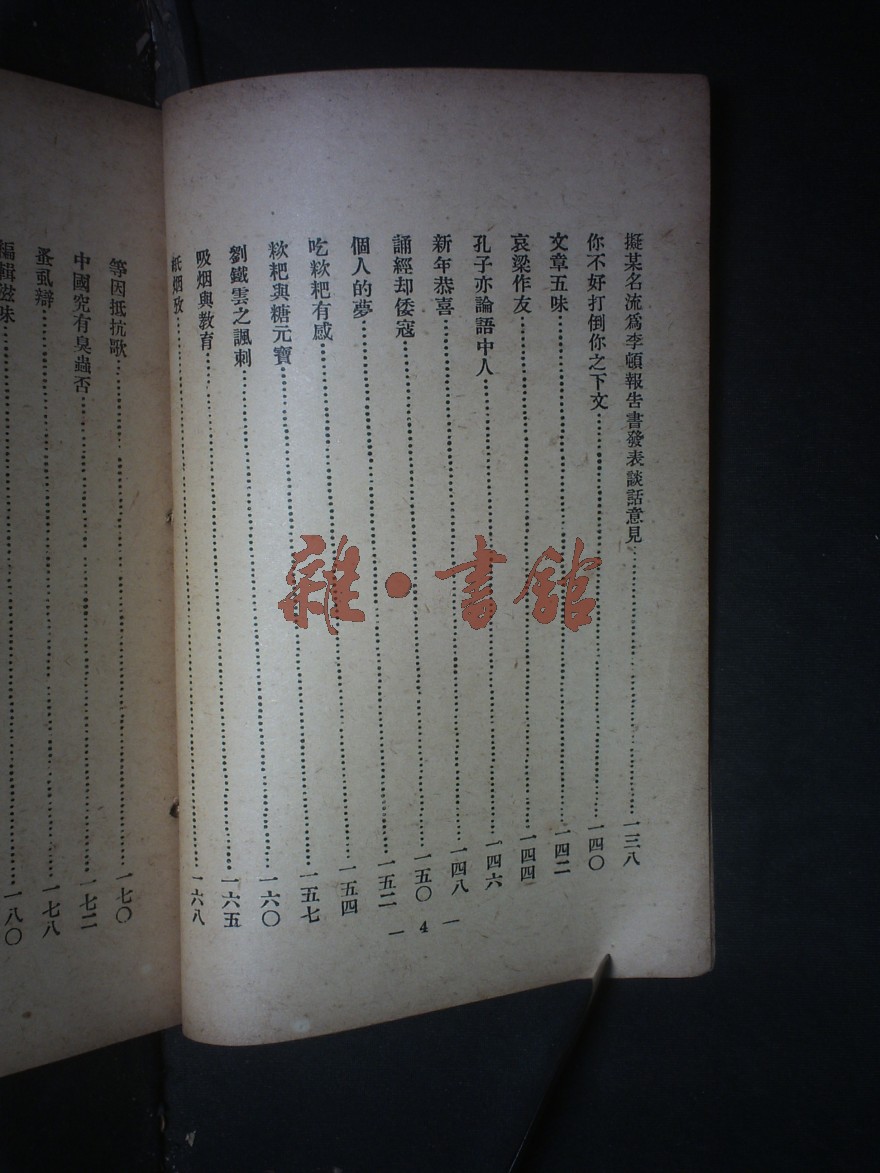 擬某名流爲李頓報告書發表談話意見……一三八
你不好打倒你之下文……一四〇
文章五味……一四二
哀梁作友……一四四
孔子亦論語中人……一四六
新年恭喜……一四八
誦經却倭寇……一五〇
個人的夢……一五二
吃粑有感……一五四
粑與糖元寶……一五七
劉鐵雲之諷刺……一六〇
吸烟與教育……一六五
紙烟攷……一六八
— 4 —
等因抵抗歌……一七〇
中國究有臭蟲否……一七二
蚤虱辯……一七八
編輯滋味……一八〇
雜·書館